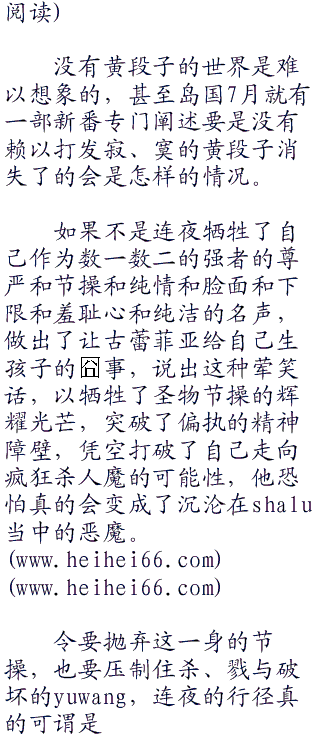 阅读)
没有黄段子的世界是难
以想象的，甚至岛国7月就有
一部新番专门阐述要是没有
赖以打发寂、寞的黄段子消
失了的会是怎样的情况。
如果不是连夜牺牲了自
己作为数一数二的强者的尊
严和节操和纯情和脸面和下
限和羞耻心和纯洁的名声，
做出了让古蕾菲亚给自己生
孩子的囧事，说出这种荤笑
话，以牺牲了圣物节操的辉
耀光芒，突破了偏执的精神
障壁，凭空打破了自己走向
疯狂杀人魔的可能性，他恐
怕真的会变成了沉沦在shalu
当中的恶魔。
(www.heihei66.com)
(www.heihei66.com)
令要抛弃这一身的节
操，也要压制住杀、戮与破
坏的yuwang，连夜的行径真
的可谓是